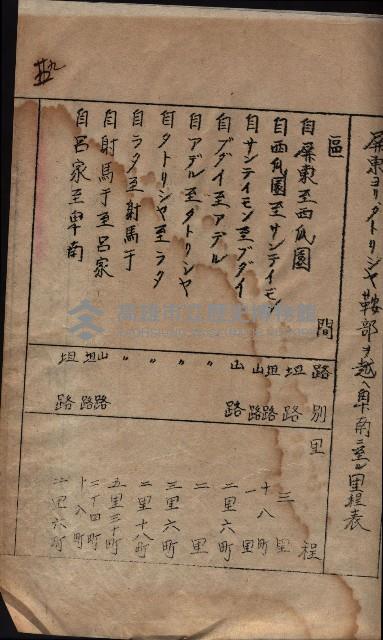 屏東ヨリタトリシヤ鞍部ヲ越ヘ卑南ニ至ル里程表
區間 路別 里程
自屏東至西瓜園 坦路 三里
自西瓜園至サンテイモン 坦路 十八町
自サンテイモン至ブダイ 山路 一里
自ブダイ至アデル 山路 二里六町
自アデル至タトリシヤ 〃 二里
自タトリシヤ至ラタ 〃 三里六町
自ラタ至射馬于 〃 二里十八町
自射馬于至呂家 山路 五里三十町
自呂家至卑南 坦路 二里六町
高雄市立歷史博物館